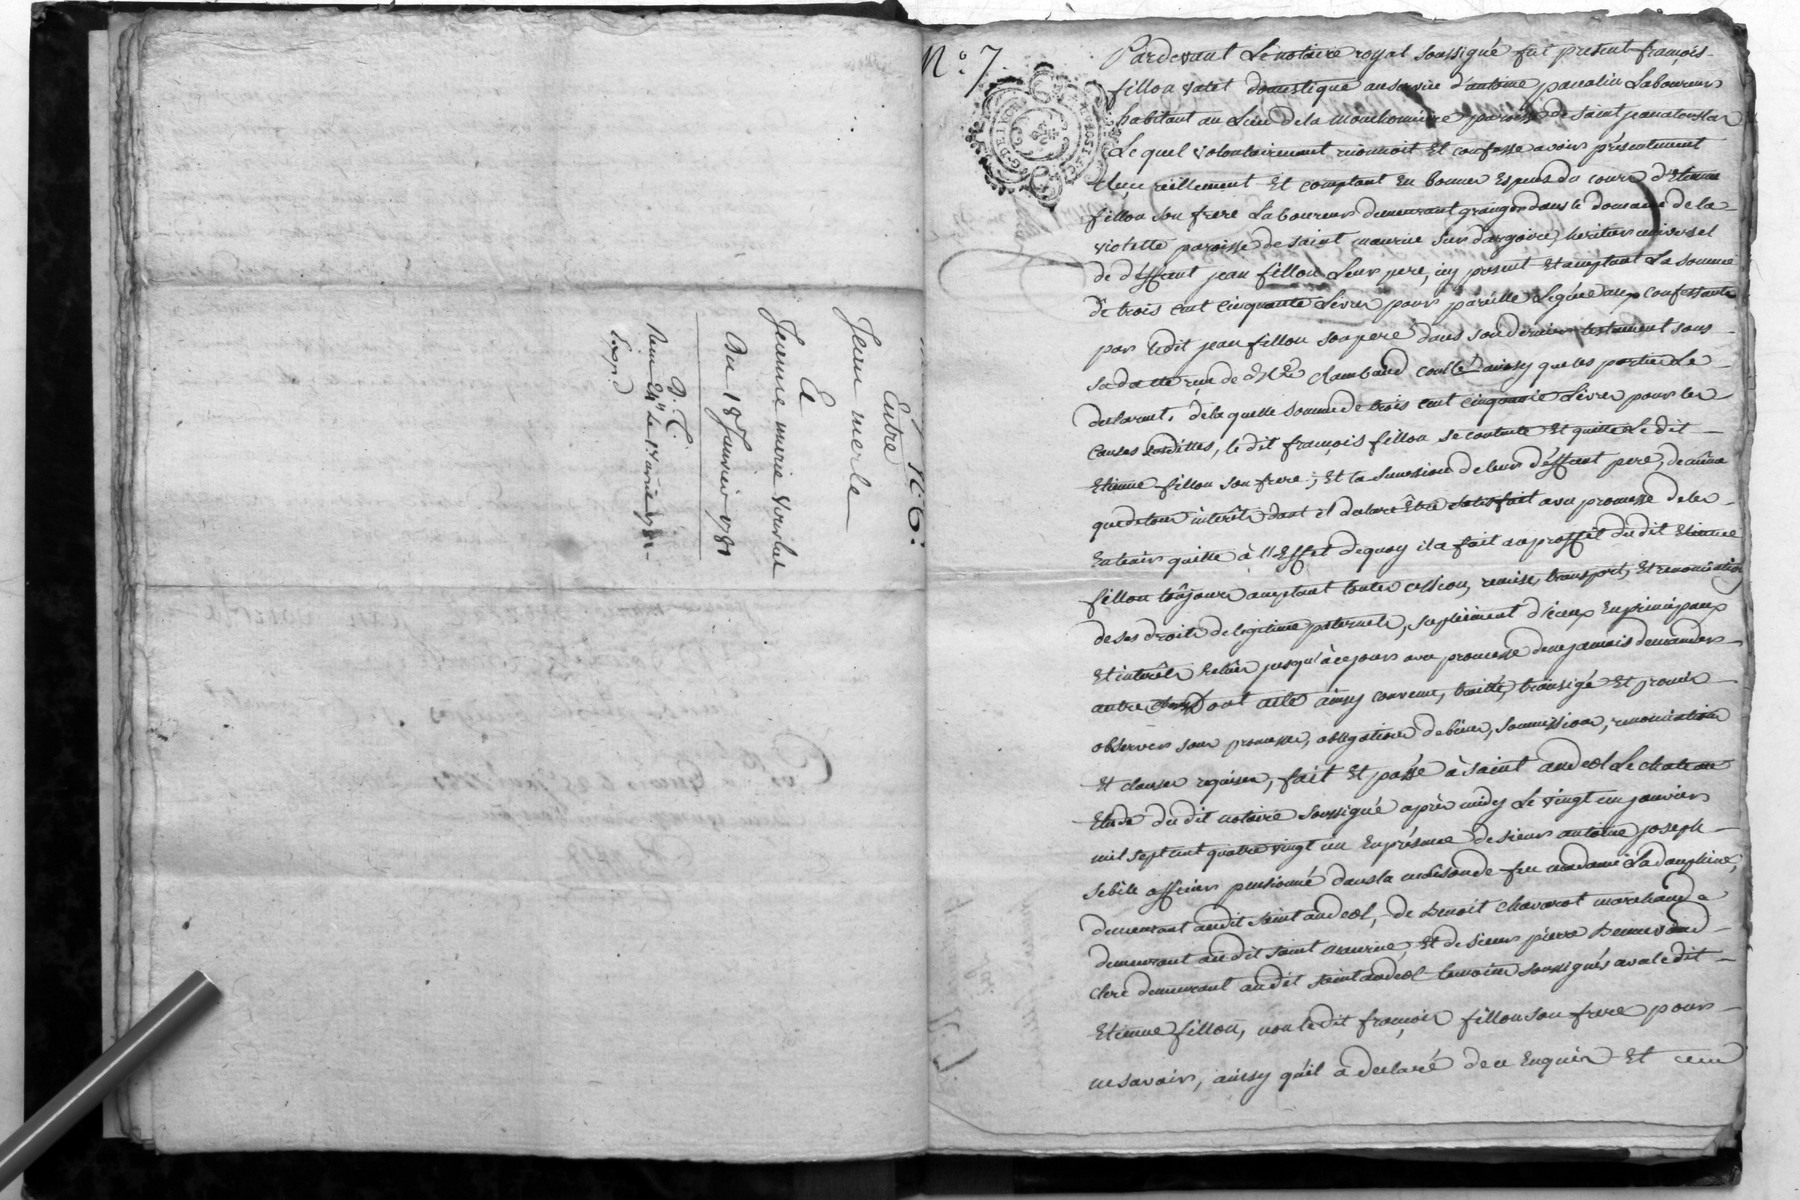 N° 6.
Entre
Jean merle
Et
Jeanne marie
Du 18 Janvier 1781
N° 7
Pardevant Le notaire royal soussigné fut présent françois
fillon valet domestique au service d'antoine Laboureur
habitant au Lieu de la paroisse de saint jean
Le quel volontairement reconnoit Et confesse avoir présentement
reellement Et comptant En bonnes Especes du cours d'Etienne
fillon son frere Laboureur demeurant granger dans le domaine de la
violette paroisse de saint maurice sur dargoire, heritier universel
de deffunt jean fillon Leur pere, icy present Et acceptant La somme
de trois cent cinquante Livres pour pareille Leguée aux confessant
par Ledit jean fillon son pere dans son dernier testament sous
sa datte reçu de Me chambaud ainsy que les parties Le
declarent, de la quelle somme de trois cent cinquante Livres pour les
Causes susdittes, le dit françois fillon se contente Et quitte Le dit
Etienne fillon son frere, Et la succession de leur deffunt pere, de même
que de tous interêts dont il declare Être satisfait avec promesse de les
En tenir quitte à l'Effet de quoy il a fait au proffit du dit Etienne
fillon toujours acceptant toutes cession, remise, transport, Et renonciation
de ses droits de legitime paternels, suplement d'iceux En principaux
Et interêts jusqu'à ce jour avec promesse de ne jamais demander
autre dont a été ainsy convenu, traitté, transigé Et promis
observer sous promesse, obligation de biens, soumission, renonciation
Et clauses requises, fait Et passé à saint andeol Le chateau
Etude du dit notaire soussigné après midy Le vingt un janvier
mil sept cent quatre vingt un En présence de sieur antoine joseph
sebile officier pensionné dans la maison de feu madame La dauphine,
demeurant audit saint andeol, de Benoit chavarot marchand
demeurant au dit saint maurice, Et de sieur pierre
clerc demeurant audit saint andeol temoins soussignés avec le dit
Etienne fillon, non le dit françois fillon son frere pour
ne savoir, ainsy qu'il a declaré de ce Enquis Et